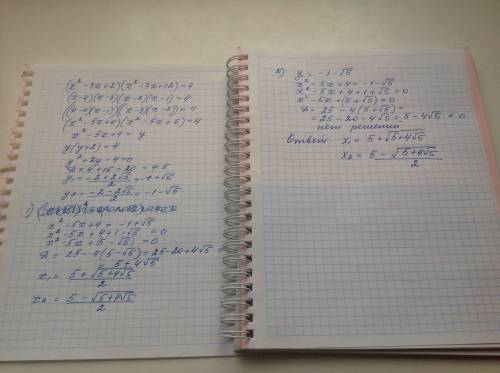 (x² - 3x + 2)(x² - 7x + 12) = 4
(x-4)(x-3)(x-2)(x-1) = 4
(x-4)(x-1)(x-3)(x-2) = 4
(x² - 5x + 4)(x² - 5x + 6) = 4
x² - 5x + 4 = y
y(y+2) = 4
y² + 2y - 4 = 0
y₁ = (-2 + 2√5)/2 = -1 + √5
y₂ = (-2 - 2√5)/2 = -1 - √5
1)
x² - 5x + 4 = -1 + √5
x² - 5x + 4 + 1 - √5 = 0
x² - 5x + (5 - √5) = 0
D = 25 - 4(5 - √5) = 25 - 20 + 4√5 =
= 5 + 4√5
x₁ = (5 + √(5 + 4√5))/2
x₂ = (5 - √(5 + 4√5))/2
2) y = -1 - √5
x² - 5x + 4 = -1 - √5
x² - 5x + 4 + 1 + √5 = 0
x² - 5x + (5 + √5) = 0
D = 25 - 4(5 + √5) =
= 25 - 20 - 4√5 = 5 - 4√5 < 0
нет решений
Ответ: x₁ = 5 + √(5 + 4√5)
x₂ = (5 - √(5 + 4√5))/2